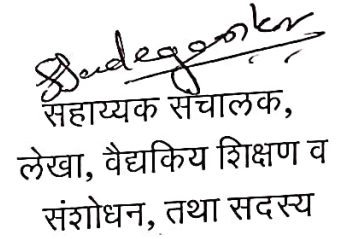 सहाय्यक संचालक,
लेखा, वैद्यकिय शिक्षण व
संशोधन, तथा सदस्य